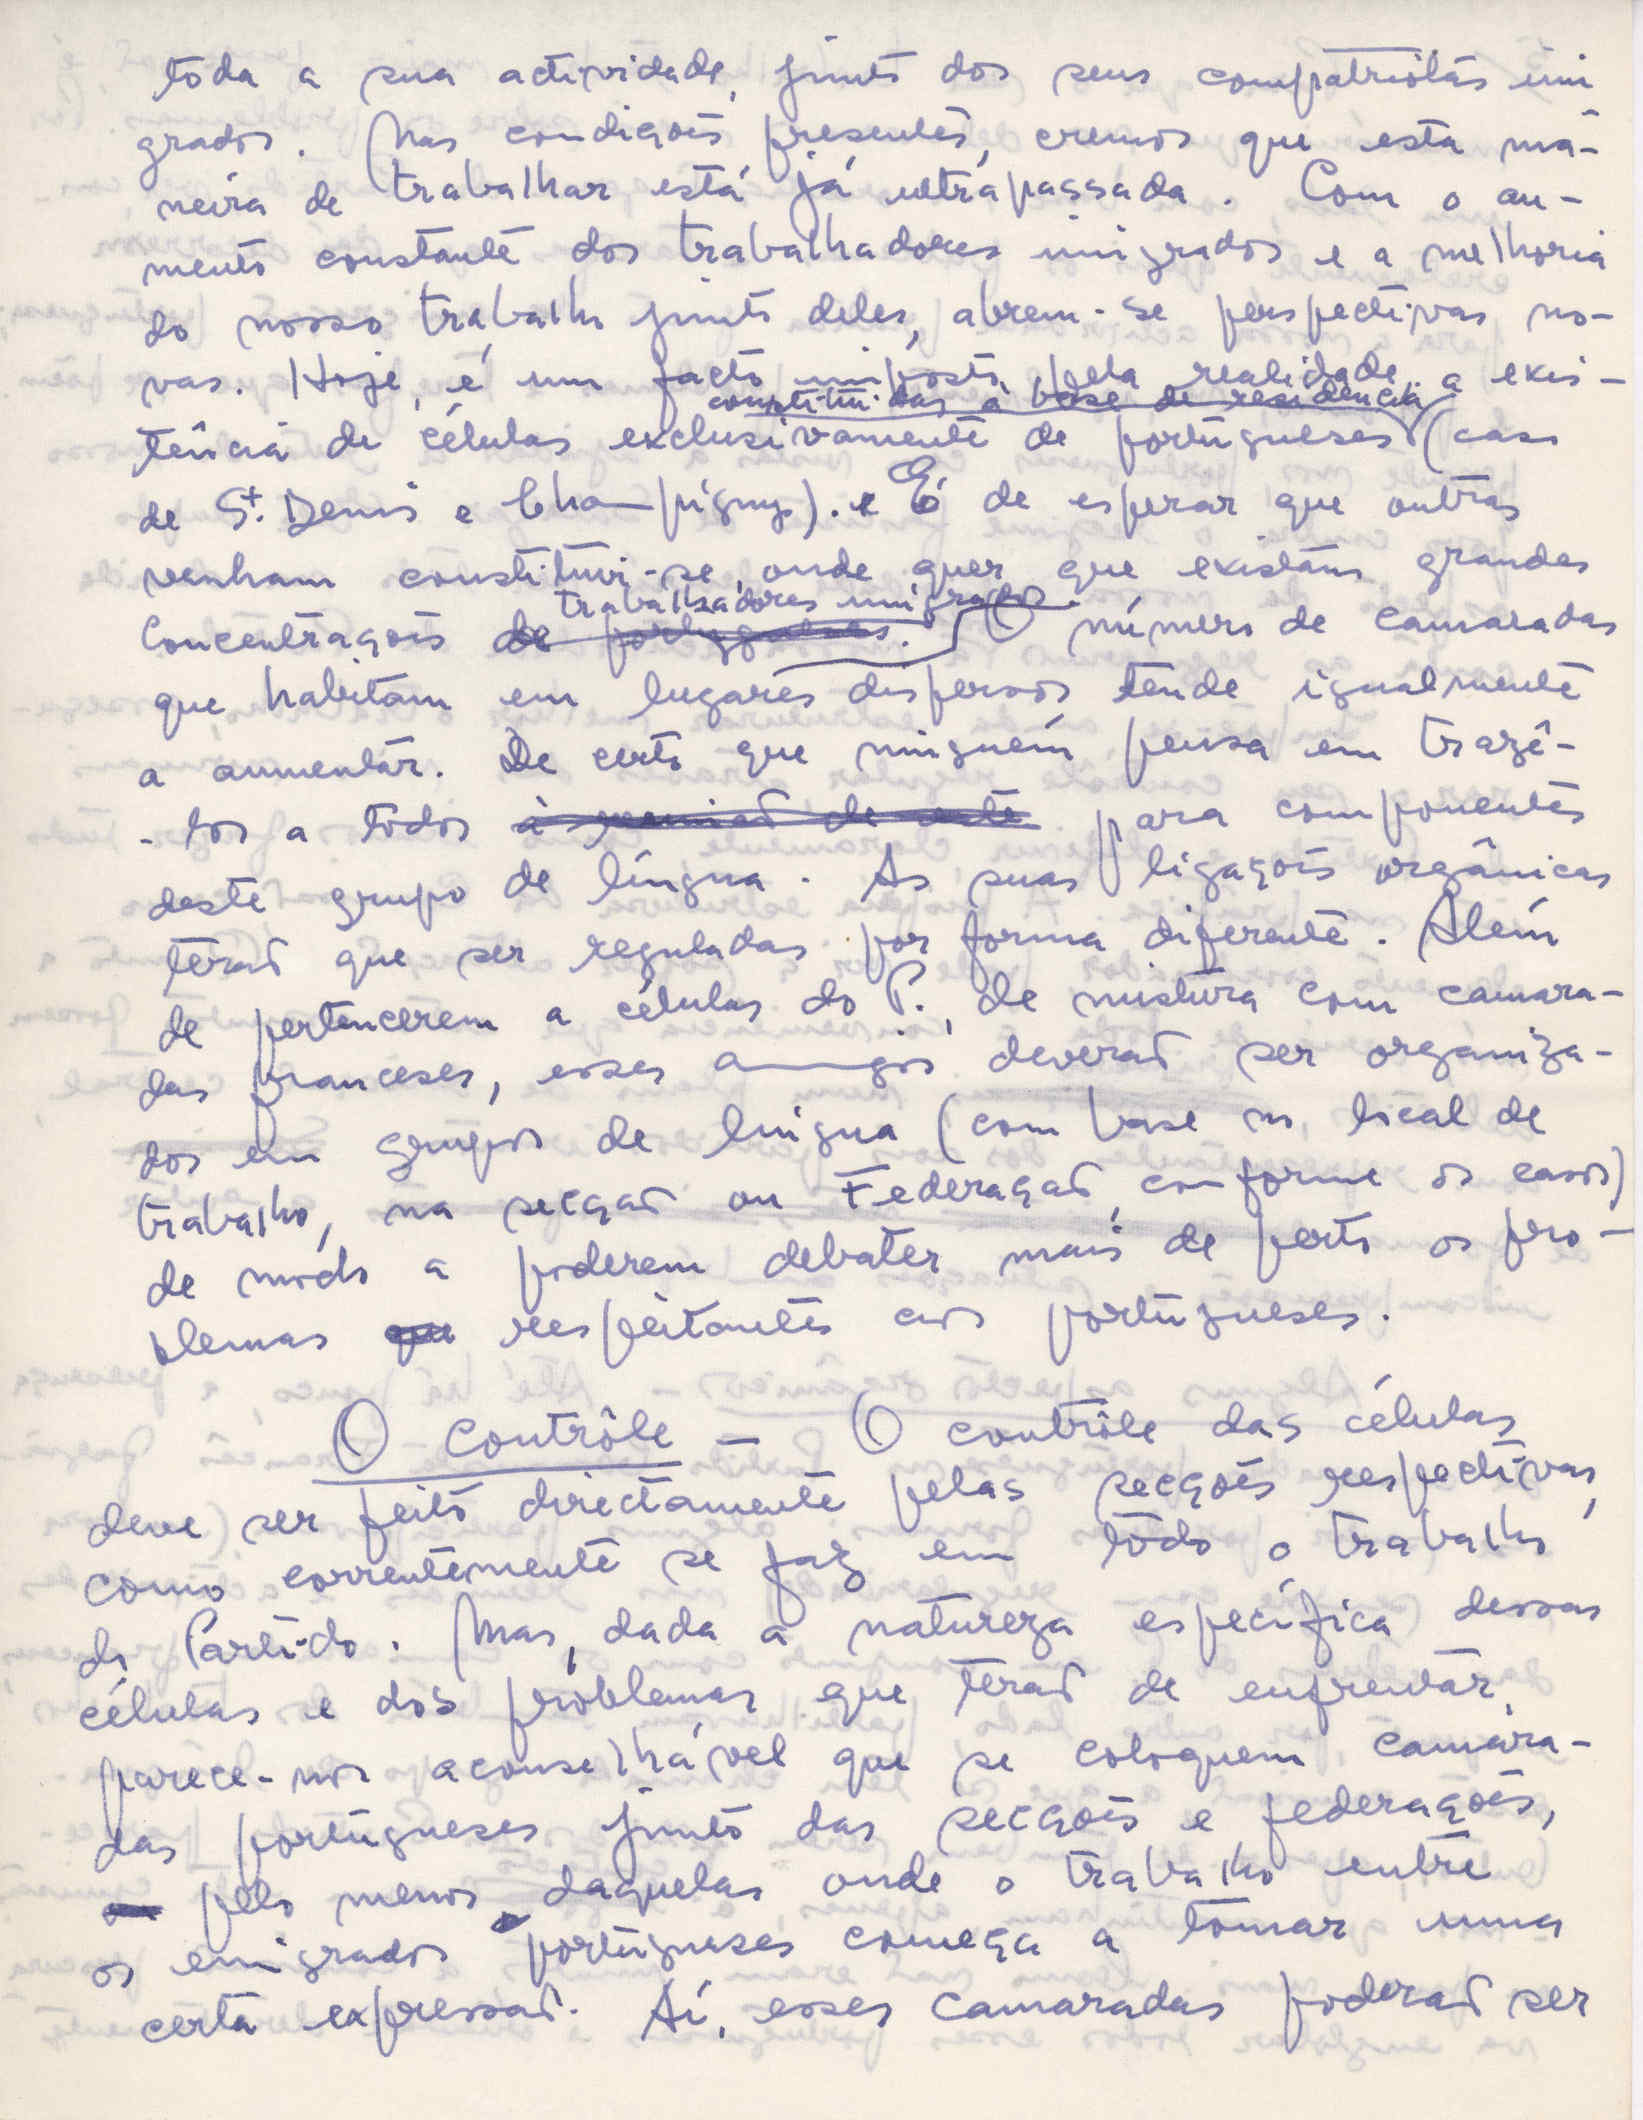 toda a sua actividade, junto dos seus compatriotas imi
grados. Nas condições presentes, cremos que esta ma-
neira de trabalhar está já ultrapassada. Com o au-
mento constante dos trabalhadores imigrados e a melhoria
do nosso trabalho junto deles, abrem-se perspectivas no-
vas. Hoje, é um facto imposto pela realidade a exis-
constituídas à base de residência
tência de células exclusivamente de portugueses (caso
de St. Denis e Champigny). e É de esperar que outras
venham constituir-se, onde quer que existam grandes
trabalhadores imigrados.
Concentrações de portugueses. O número de camaradas
que habitam em lugares dispersos tende igualmente
a aumentar. De certo que ninguém pensa em trazê-
-los a todos à reunião de este para componentes
deste grupo de língua. As suas ligações orgânicas
terão que ser reguladas por forma diferente. Além
de pertencerem a células do P., de mistura com camara-
das franceses, esses amigos deverão ser organiza-
dos em grupos de língua (com base no local de
trabalho, na secção ou Federação, conforme os casos)
de modo a poderem debater mais de perto os pro-
blemas que respeitantes aos portugueses.
O Contrôle - O contrôle das células
deve ser feito directamente pelas secções respectivas,
como correntemente se faz em todo o trabalho
do Partido. Mas, dada a natureza específica dessas
células e dos problemas que terão de enfrentar,
parece-nos aconselhável que se coloquem camara-
das portugueses junto das secções e federações,
pelo menos daquelas onde o trabalho entre
os emigrados portugueses começa a tomar uma
certa expressão. Aí, esses camaradas poderão ser